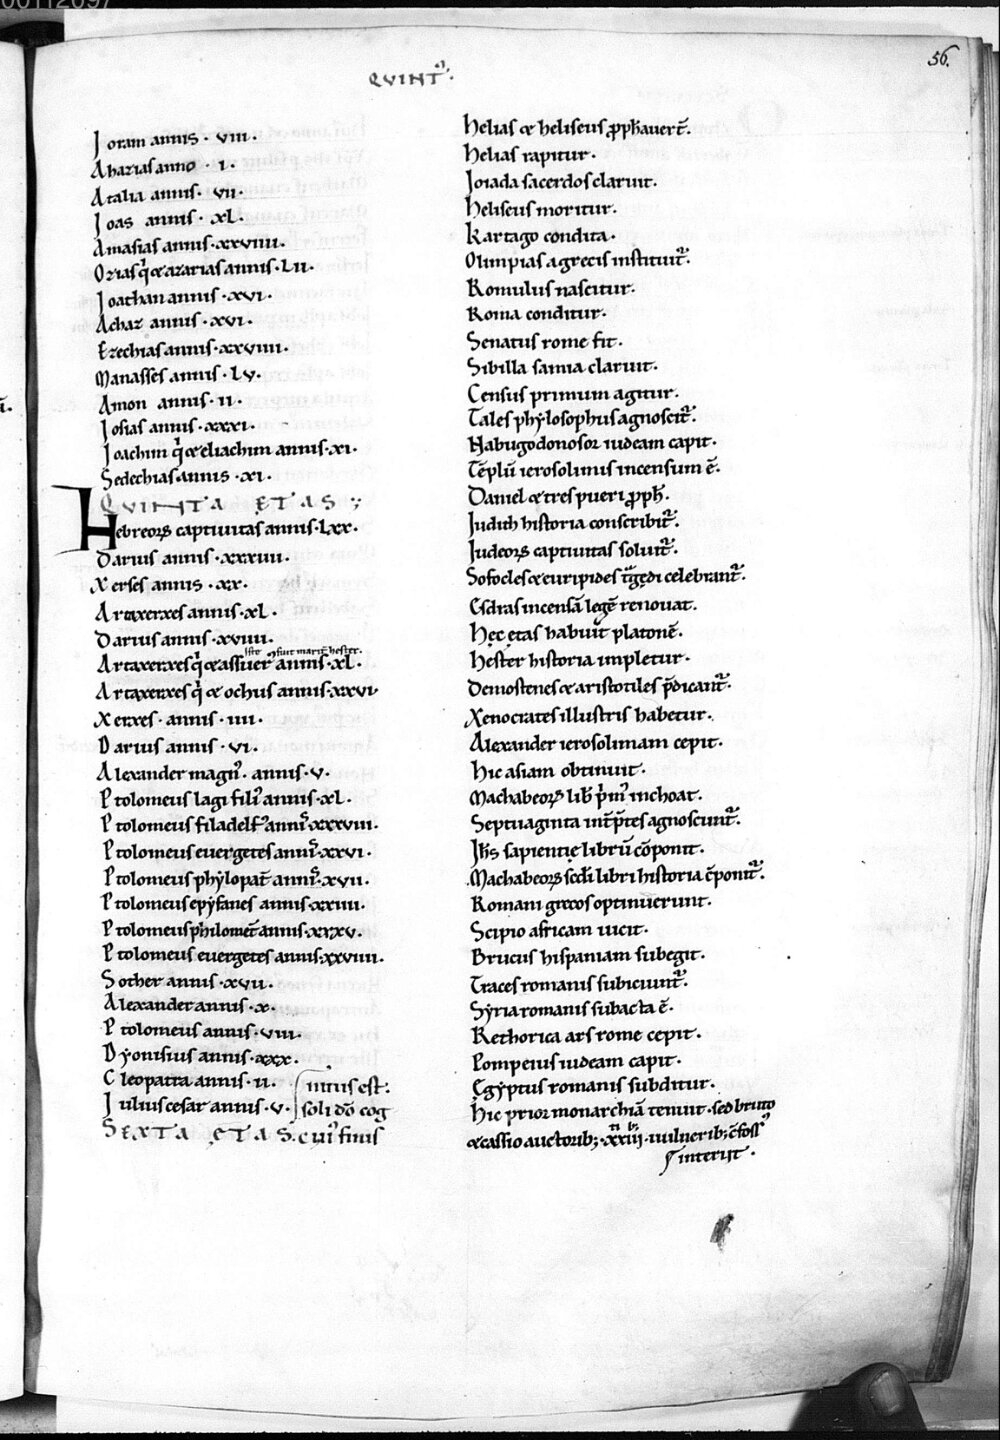 00112697
56.
QVINTꝰ.
Joram annis · viii ·
Ahazias anno · i ·
Atalia annis · vii ·
Joas annis · xL ·
Amasias annis · xxviiii ·
Ozias q̇ & azarias annis · Lii ·
Joathan annis · xvi ·
Achaz annis · xvi ·
Ezechias annis · xxviiii ·
Manasses annis · Lv ·
Amon annis · ii ·
Josias annis · xxxi ·
Joachim q̇ & eliachim annis · xi ·
Sedechias annis · xi ·
QVINTA ETAS ;
Hebreoꝝ captiuitas annis · Lxx ·
Darius annis · xxxiiii ·
Xerses annis · xx ·
Artaxerxes annis · xL ·
Darius annis · xviiii ·
Artaxerxes q̇ & assuer annis · xL ·
Artaxerxes q̇ & ochus annis · xxvi ·
Xerxes · annis · iiii ·
Darius annis · vi ·
Alexander magnꝰ · annis · v ·
Ptolomeus lagi filiꝰ annis · xL ·
Ptolomeus filadelfꝰ annis · xxxviii ·
Ptolomeus euergetes annis · xxvi ·
Ptolomeus phylopat̄ annis · xvii ·
Ptolomeus epyfanes annis · xxiiii ·
Ptolomeus philomet̄ annis · xxxv ·
Ptolomeus euergetes annis · xxviiii ·
Sother annis · xvii ·
Alexander annis · x ·
Ptolomeus annis · viii ·
Dyonisius annis · xxx ·
Cleopatra annis · ii ·
Julius cesar annis · v ·
SEXTA ETAS · cuiꝰ finis
nitus est :
soli dō cog
Helias & heliseus ꝓph̄auer̄t ·
Helias rapitur ·
Joiada sacerdos claruit ·
Heliseus moritur ·
Kartago condita ·
Olimpias a grecis instituit᷑ ·
Romulus nascitur ·
Roma conditur ·
Senatus rome fit ·
Sibilla samia claruit ·
Census primum agitur ·
Tales phylosophus agnoscit᷑ ·
Nabugodonosor iudeam capit ·
Tēplū ierosolimis incensum ē ·
Daniel & tres pueri ꝓph̄ ·
Judith historia conscribit᷑ ·
Judeoꝝ captiuitas soluit᷑ ·
Sofocles & euripides tᷓgędi celebrant᷑ ·
Esdras incensā legē renouat ·
Hęc etas habuit platonē ·
Hester historia impletur ·
Demostenes & aristotiles p̄dicant᷑ ·
Xenocrates illustris habetur ·
Alexander ierosolimam cepit ·
Hic asiam obtinuit ·
Machabeoꝝ lib̄ p̍mꝰ inchoat ·
Septuaginta int̄p̄tes agnoscunt᷑ ·
Jhs̄ sapientię librū cōponit ·
Machabeoꝝ scd̄i libri historia cōponit᷑ ·
Romani grecos optinuerunt ·
Scipio africam uicit ·
Brucus hispaniam subegit ·
Traces romanis subiciunt᷑ ·
Syria romanis subacta ē ·
Rethorica ars rome cepit ·
Pompeius iudeam capit ·
Egyptus romanis subditur ·
Hic prior monarchiā tenuit · sed bruto
& cassio auctorib; · xxiij · uulnerib; cōfossꝰ
interiit ·